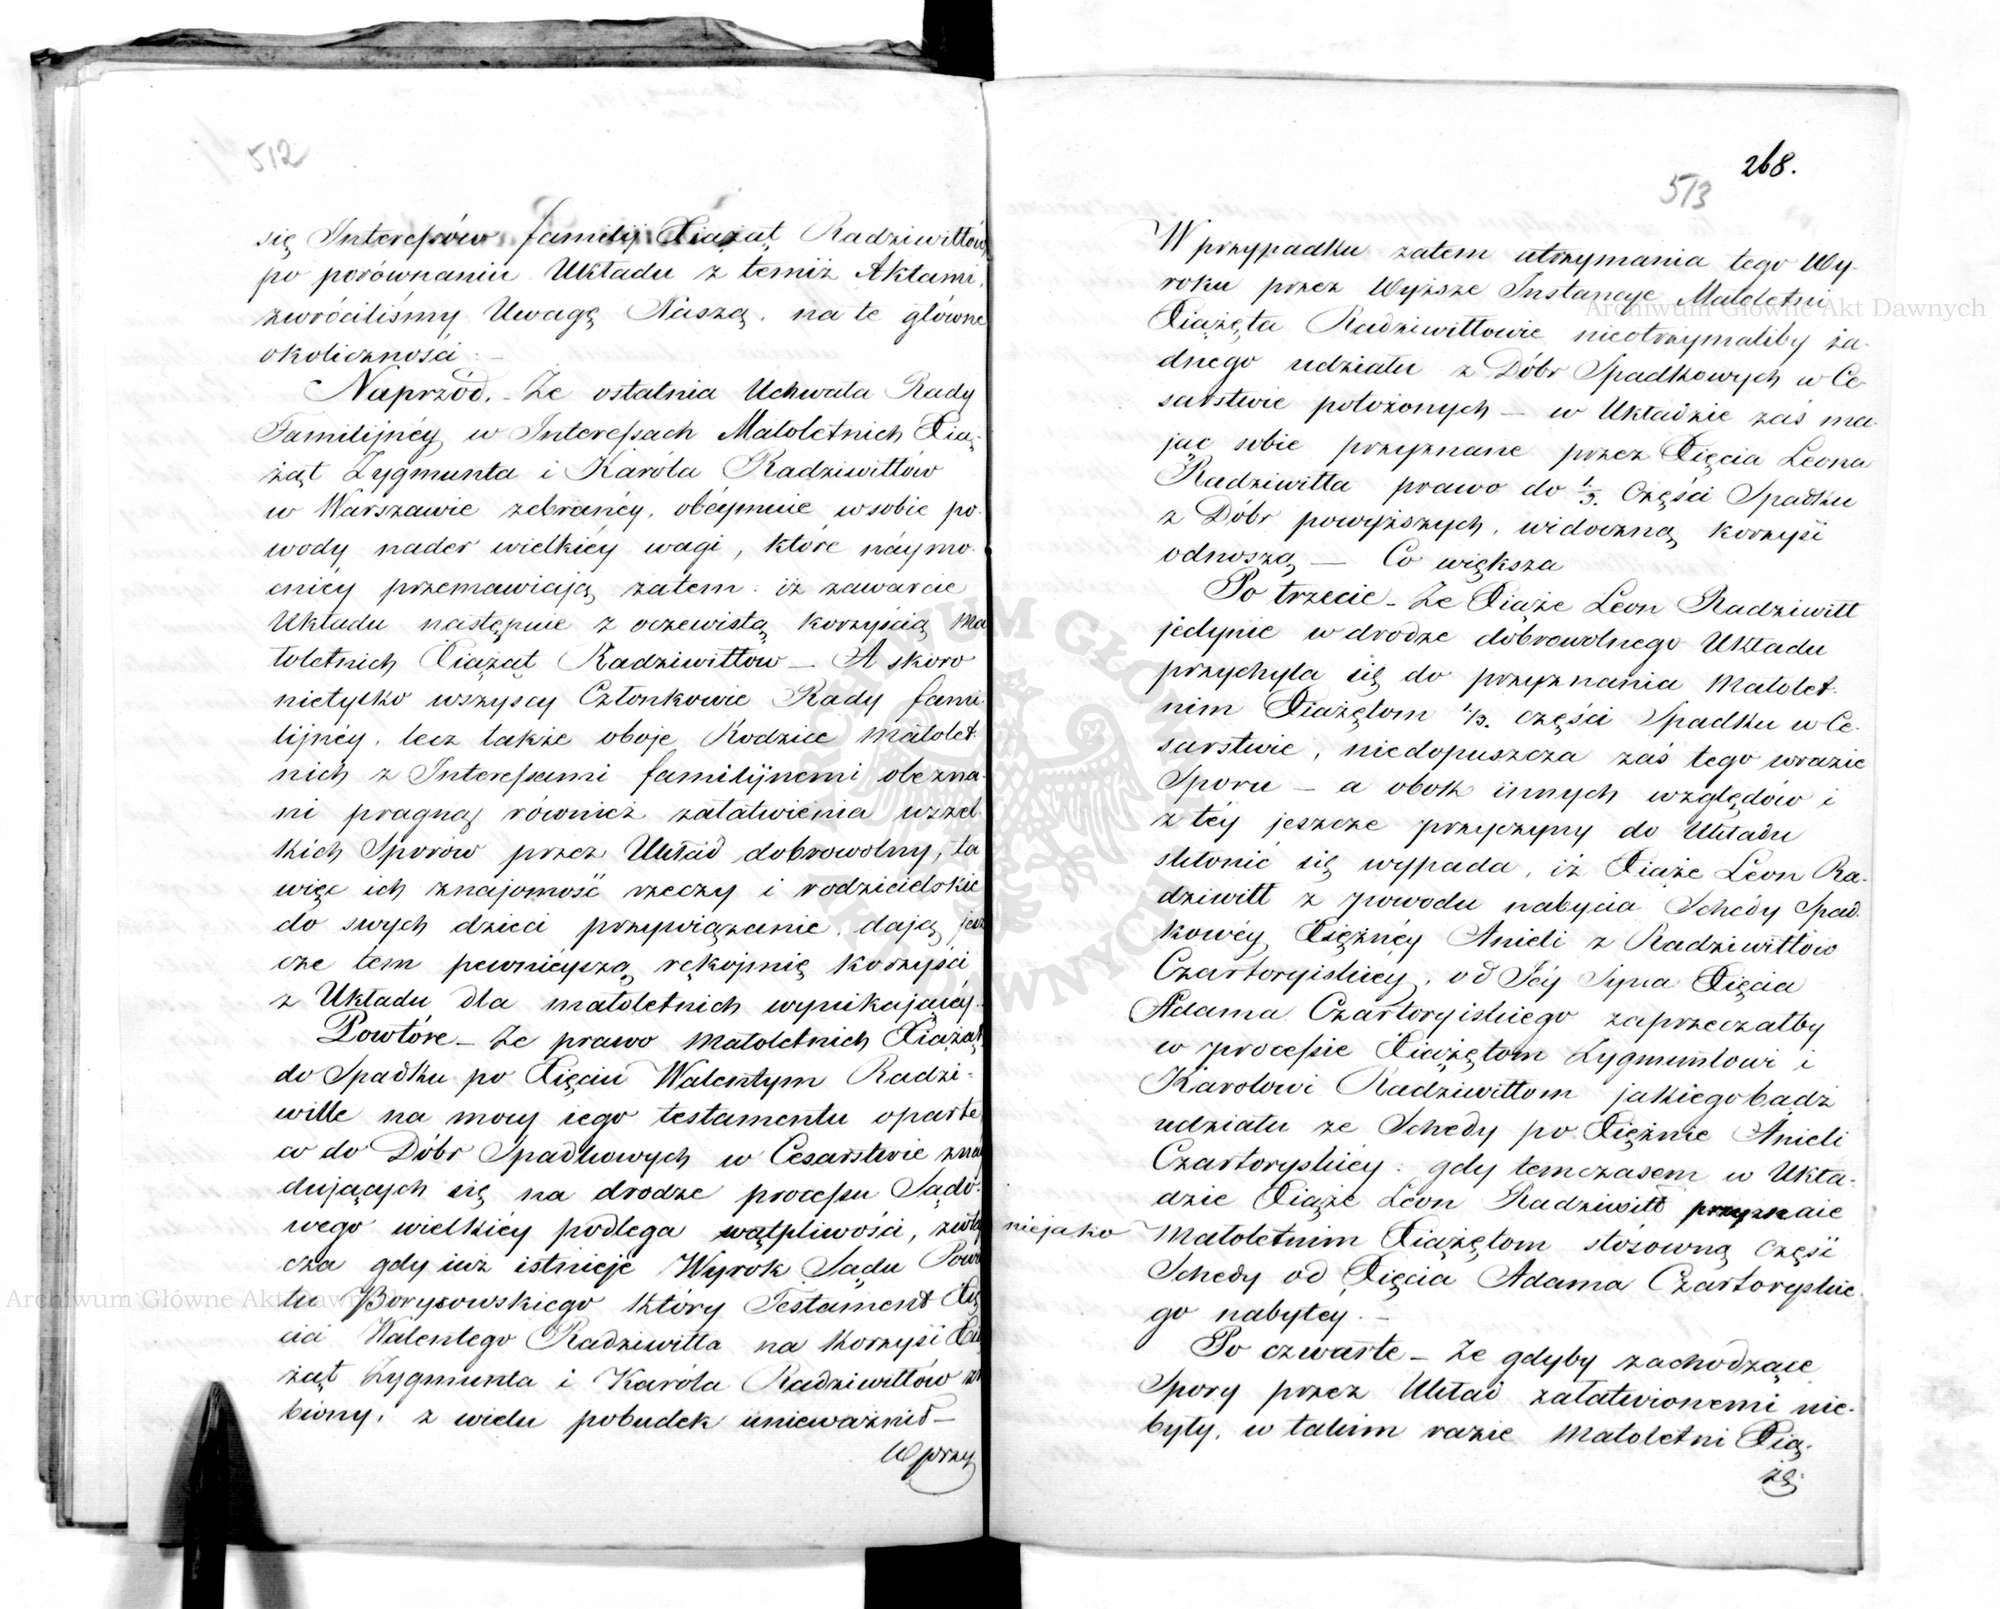 512
się Interessów familij Xiążąt Radziwiłłów,
po porównaniu Układu z temiż Aktami,
zwróciliśmy Uwagę Naszą, na te główne
okoliczności: —
Naprzód. – Że ostatnia Uchwała Rady
Familijnéy w Interessach Małoletnich Xią-
żąt Zygmunta i Karóla Radziwiłłów
w Warszawie zebranéy, obéymuie w sobie po-
wody nader wielkiéy wagi, które náymo-
cniéy przemawiaią zatem: iż zawarcie
Układu następuie z oczewistą korzyścią Ma
łoletnich Xiążąt Radziwiłłów — A skoro
nietylko wszyscy Członkowie Rady fami-
lijnéy, lecz także oboje Rodzice Małolet-
nich z Interessami familijnemi obezna-
ni pragną również załatwienia wszel-
kich Sporów przez Układ dobrowolny, ta
więc ich znajomość rzeczy i rodzicielskie
do swych dzieci przywiązanie, dają jesz
cze tem pewniéyszą rękojmię korzyści
z Układu dla małoletnich wynikającéy. –
Powtóre – Że prawo Małoletnich Xiążąt
do Spadku po Xięciu Walentym Radzi-
wille na mocy iego testamentu oparte
co do Dóbr Spadkowych w Cesarstwie znáy
dujących się na drodze processu Sądo-
wego wielkiéy podlega wątpliwości, zwła
cza gdy iuż istnieje Wyrok Sądu Powia
tu Borysowskiego który Testament Xię
cia Walentego Radziwiłła na korzyść Xią
żąt Zygmunta i Karóla Radziwiłłów zro
biony, z wielu pobudek unieważnił —
W przy
268.
513
W przypadku zatem utrzymania tego Wy-
roku przez Wyższe Instancye Małoletni
Xiążęta Radziwiłłowie nieotrzymaliby ża-
dnego udziału z Dóbr Spadkowych w Ce-
sarstwie położonych — w Układzie zaś ma-
jąc sobie przyznane przez Xięcia Leona
Radziwiłła prawo do 1/3. Części Spadku
z Dóbr powyższych, widoczną korzyść
odnoszą — Co większa
Po trzecie – Że Xiąże Leon Radziwiłł
jedynie w drodze dobrowolnego Układu
przychyla się do przyznania Małolet-
nim Xiążętom 1/3. części Spadku w Ce-
sarstwie, niedopuszcza zaś tego w razie
Sporu — a obok innych względów i
z téy jeszcze przyczyny do Układu
skłonić się wypada, iż Xiąże Leon Ra-
dziwiłł z powodu nabycia Schedy Spad-
kowéy Xiężnéy Anieli z Radziwiłłów
Czartoryiskiéy, od Jéy Syna Xięcia
Adama Czartoryiskiego zaprzeczałby
w processie Xiążętom Zygmuntowi i
Karolowi Radziwiłłom jakiegobądź
udziału ze Schedy po Xiężnie Anieli
Czartoryskiéy: gdy temczasem w Ukła-
dzie Xiąże Leon Radziwiłł przyznaie
niejako Małoletnim Xiążętom stósowną część
Schedy od Xięcia Adama Czartoryskie-
go nabytey. –
Po czwarte – Że gdyby zachodzące
Spory przez Układ załatwionemi nie-
były, w takim razie Małoletni Xią-
żę-
Archiwum Główne Akt Dawnych
Archiwum Główne Akt Dawnych
ARCHIWUM GŁÓWNE AKT DAWNYCH